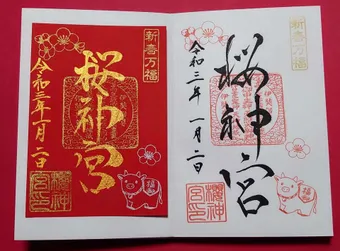 新喜万福
桜神宮
令和三年一月二日
櫻神
宮印
新喜万福
桜神宮
令和三年一月二日
櫻神
宮印